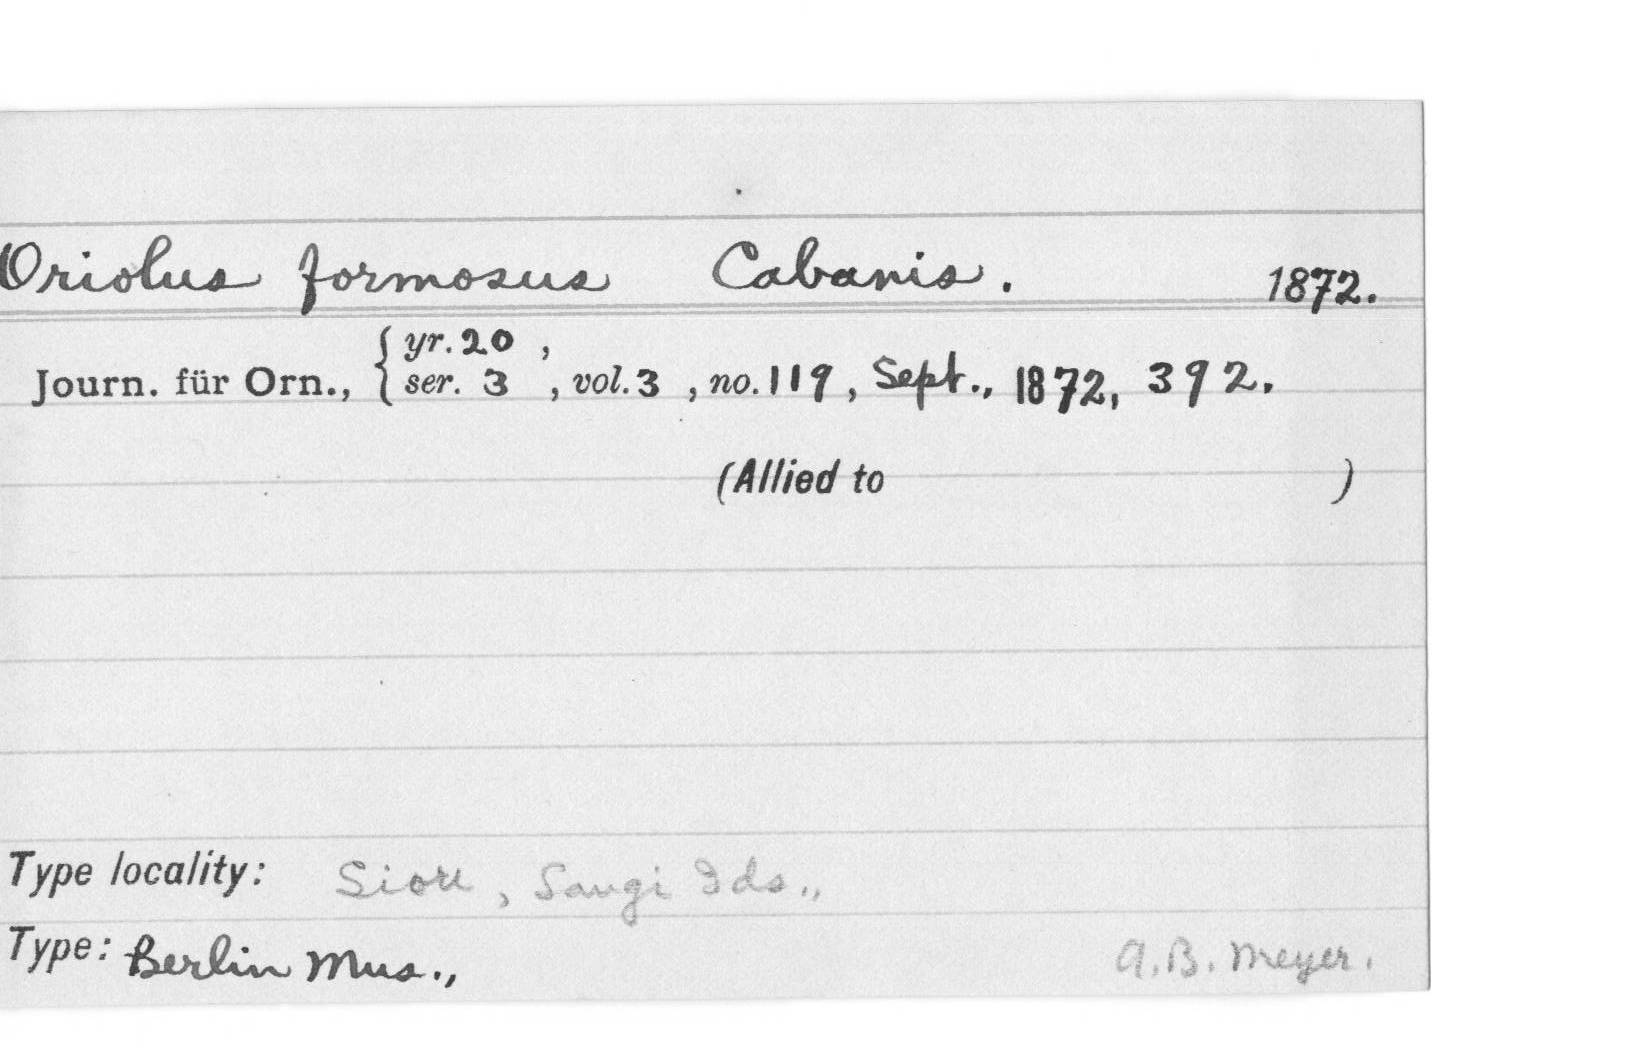 Oriolus formosus Cabanis. 1872.
Journ. für Orn., { yr. 20 ,
ser. 3 , vol. 3 , no. 119 , Sept., 1872, 392.
(Allied to )
Type locality: Siau , Sangi Ids.,
Type: Berlin Mus., A.B. Meyer.